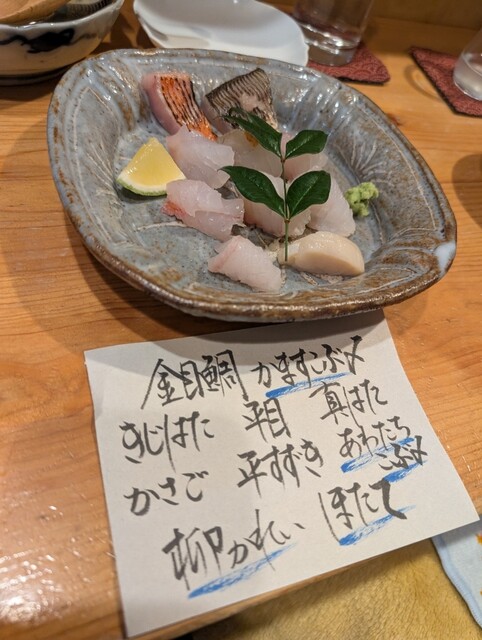 金目鯛 かますこぶ〆
きじはた 平目 真はた
かさご 平すずき あわたちこぶ〆
柳かれい ほたて